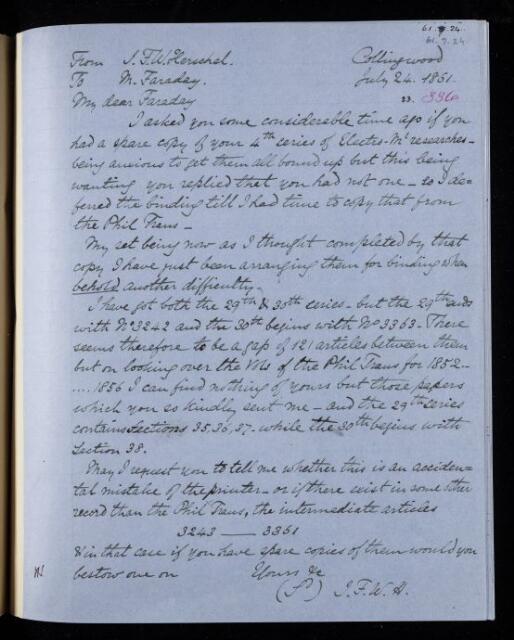 61.7.24.
61.7.24.
From J.F.W. Herschel.
Collingwood
To M. Faraday.
July 24. 1861.
My dear Faraday
23. 336
I asked you some considerable time ago if you
had a spare copy of your 4th series of Electro-Ml researches -
being anxious to get them all bound up but this being
wanting you replied that you had not one - so I de=
ferred the binding till I had time to copy that from
the Phil Trans -
My set being now as I thought completed by that
copy I have just been arranging them for binding when
behold another difficulty.
I have got both the 29th & 30th series - but the 29th ends
with No 3242 and the 30th begins with No 3363. There
seems therefore to be a gap of 121 articles between them
but on looking over the Vols of the Phil Trans for 1852 ..
..... 1856 I can find nothing of yours but those papers
which you so kindly sent me - and the 29th series
contains sections 35, 36, 37 - while the 30th begins with
Section 38.
May I request you to tell me whether this is an acciden=
tal mistake of the printer - or if there exist in some other
record than the Phil Trans, the intermediate articles
3243 —— 3361
& in that case if you have spare copies of them would you
bestow one on
Yours &c
J.F.W.H.